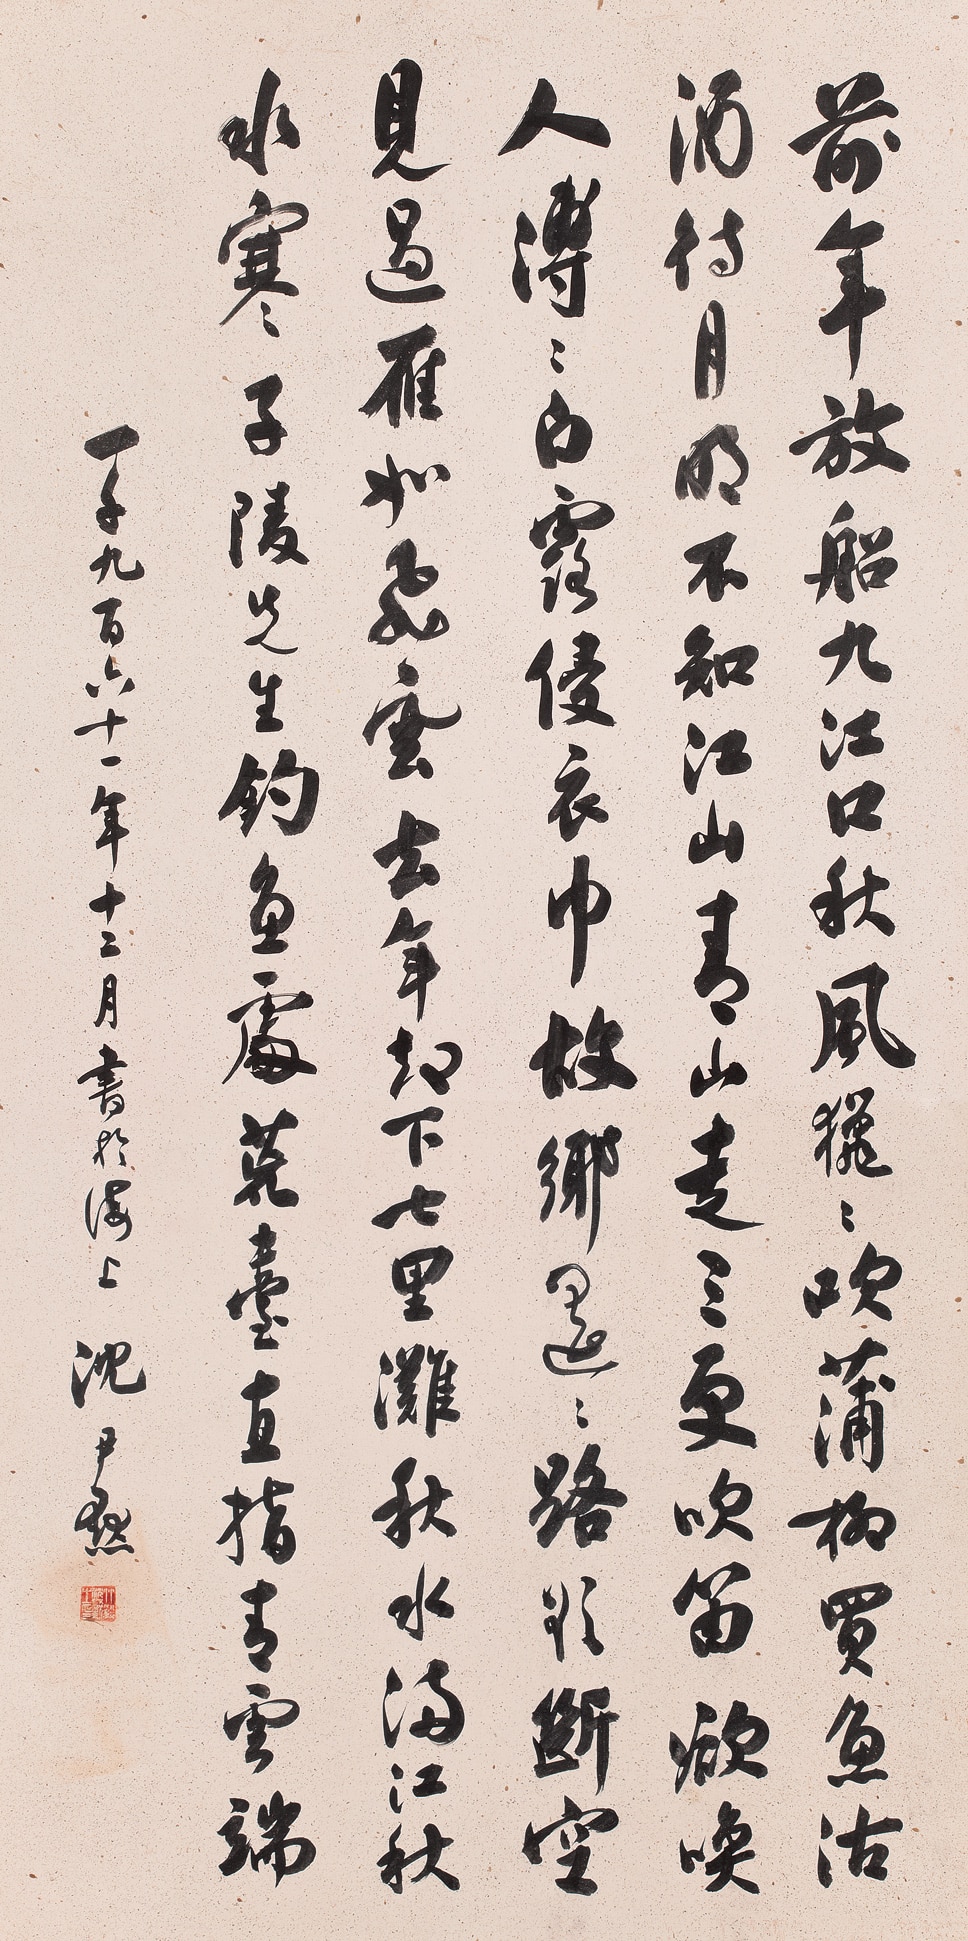 前年放船九江口秋風獵〻吹蒲柳買魚沽
酒待月明不知江山青山走三更吹笛欲喚
人溥〻白露侵衣巾故鄉遥〻路欲斷空
見過雁如飛雲去年却下七里灘秋水滿江秋
水寒〻子陵先生釣魚處荒臺直指青雲端
一千九百六十一年十二月書於海上 沈尹默